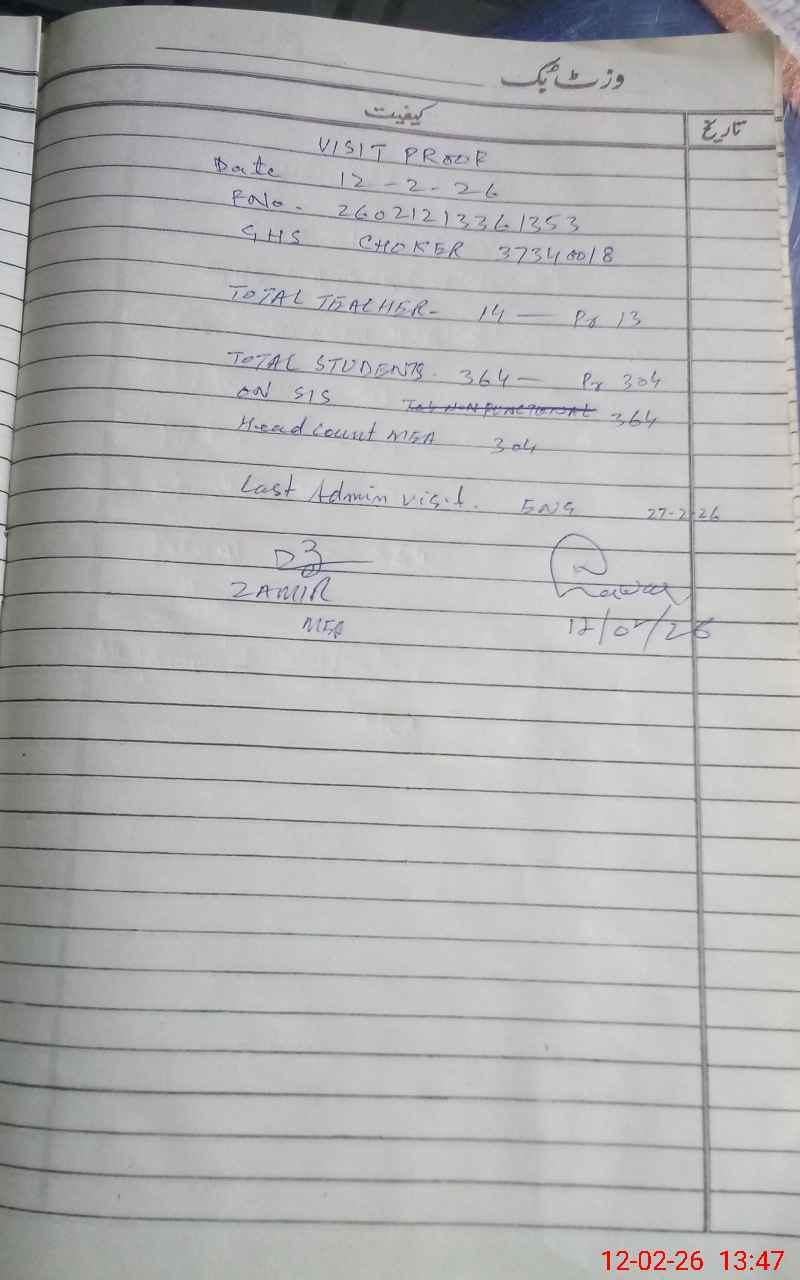 وزٹ بک
کیفیت
تاریخ
VISIT PROOF
Date 12-2-26
F No. 26021213361353
GHS CHOKER 37340018
TOTAL TEACHER- 14 — Pr 13
TOTAL STUDENTS. 364 — Pr 304
ON SIS 364
Head count MEA 304
Last Admin visit. 27-2-26
ZAMIR
MEA
12/02/26
12-02-26 13:47